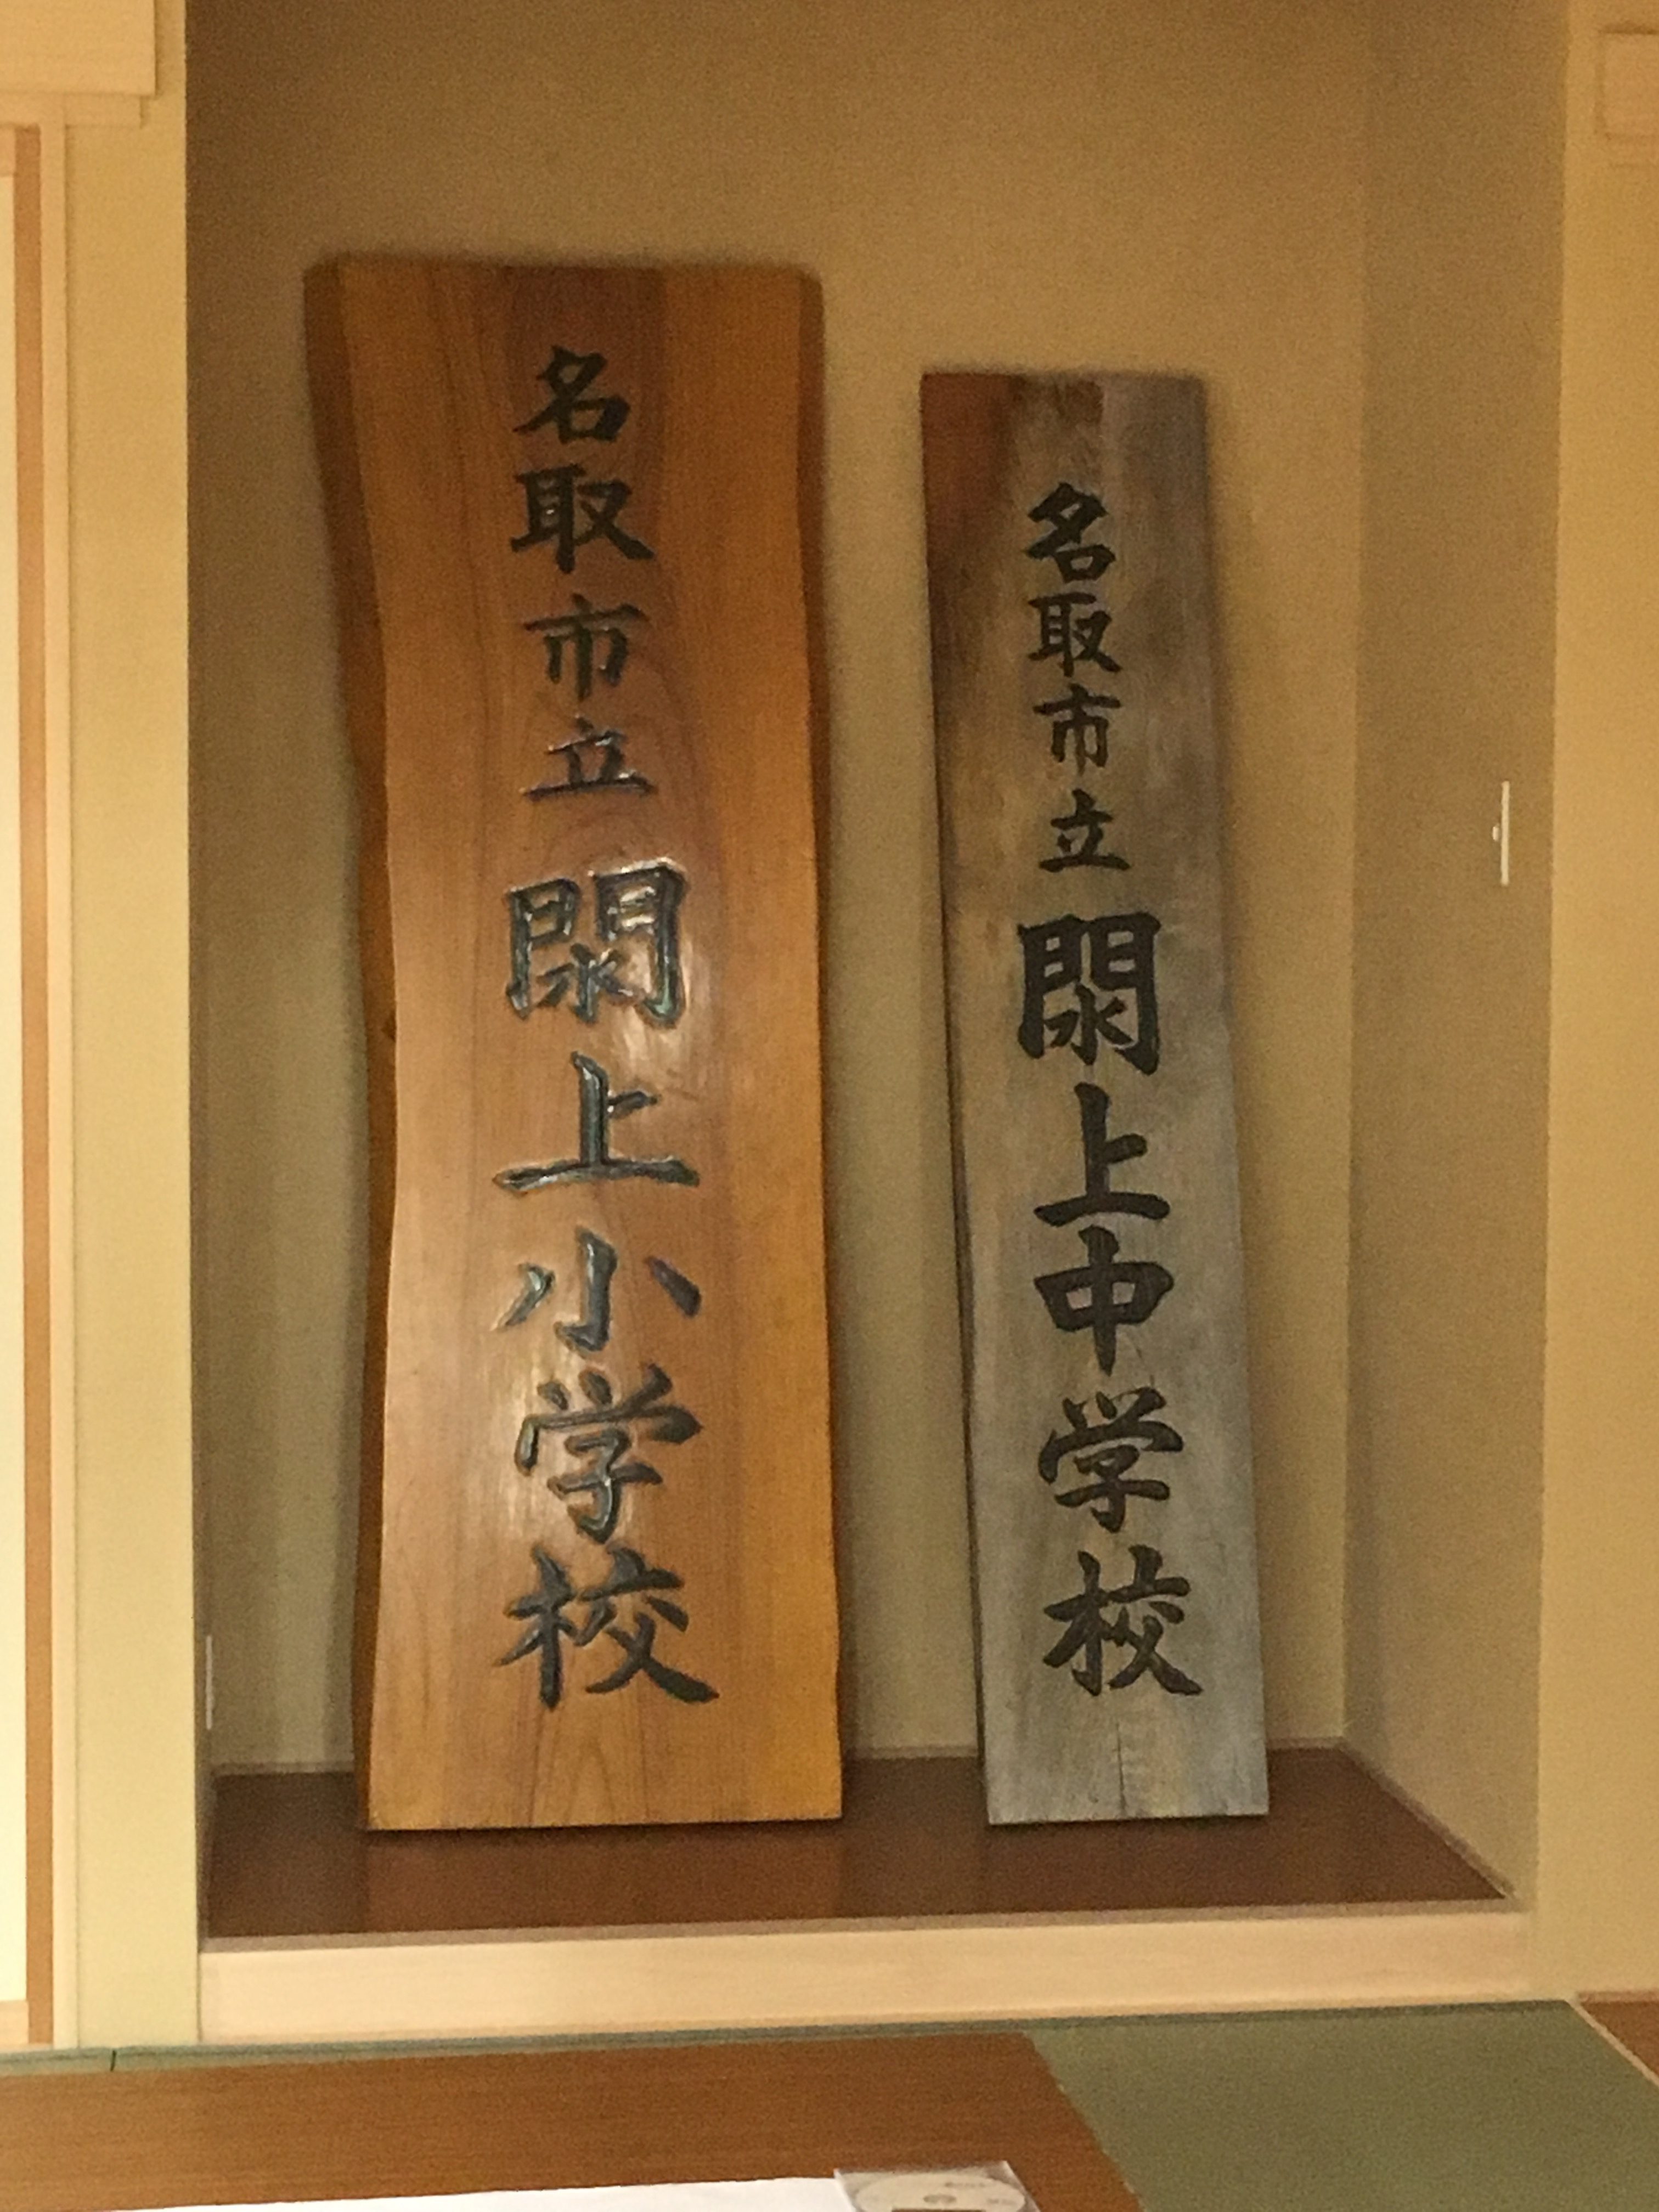 名取市立閖上小学校
名取市立閖上中学校